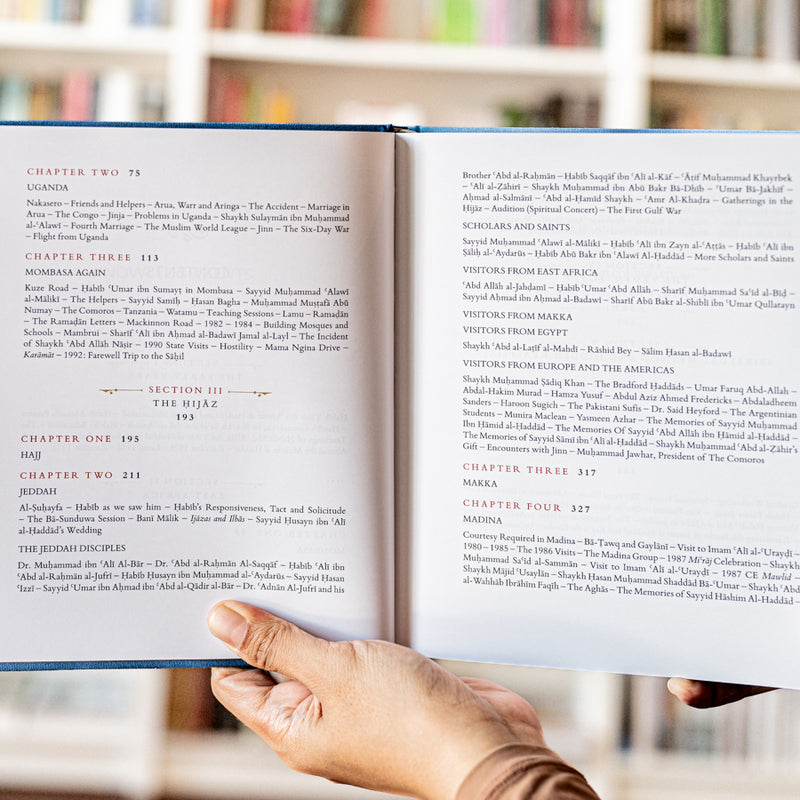 CHAPTER TWO 75
UGANDA
Nakasero – Friends and Helpers – Arua, Warr and Aringa – The Accident – Marriage in
Arua – The Congo – Jinja – Problems in Uganda – Shaykh Sulaymān ibn Muḥammad
al-ʿAlawī – Fourth Marriage – The Muslim World League – Jinn – The Six-Day War
– Flight from Uganda
CHAPTER THREE 113
MOMBASA AGAIN
Kuze Road – Ḥabīb ʿUmar ibn Sumayṭ in Mombasa – Sayyid Muḥammad ʿAlawī
al-Mālikī – The Helpers – Sayyid Samīḥ – Hasan Bagha – Muḥammad Muṣṭafā Abū
Numay – The Comoros – Tanzania – Watamu – Teaching Sessions – Lamu – Ramaḍān
– The Ramaḍān Letters – Mackinnon Road – 1982 – 1984 – Building Mosques and
Schools – Mambrui – Sharīf ʿAlī ibn Aḥmad al-Badawī Jamal al-Layl – The Incident
of Shaykh ʿAbd Allāh Nāṣir – 1990 State Visits – Hostility – Mama Ngina Drive –
Karāmāt – 1992: Farewell Trip to the Sāḥil
SECTION III
THE ḤIJĀZ
193
CHAPTER ONE 195
HAJJ
CHAPTER TWO 211
JEDDAH
Al-Ṣuḥayfa – Ḥabīb as we saw him – Ḥabīb's Responsiveness, Tact and Solicitude
– The Bā-Sunduwa Session – Banī Mālik – Ijāzas and Ilbās – Sayyid Ḥusayn ibn ʿAlī
al-Ḥaddād's Wedding
THE JEDDAH DISCIPLES
Dr. Muḥammad ibn ʿAlī Āl-Bār – Dr. ʿAbd al-Raḥmān Āl-Saqqāf – Ḥabīb ʿAlī ibn
ʿAbd al-Raḥmān al-Jufrī – Ḥabīb Ḥusayn ibn Muḥammad al-ʿAydarūs – Sayyid Ḥasan
ʿIzzī – Sayyid ʿUmar ibn Aḥmad ibn ʿAbd al-Qādir al-Bār – Dr. ʿAdnān Al-Jufrī and his
Brother ʿAbd al-Raḥmān – Ḥabīb Saqqāf ibn ʿAlī al-Kāf – ʿĀṭif Muḥammad Khayrbek
– ʿAlī al-Zāhirī – Shaykh Muḥammad ibn Abū Bakr Bā-Dhīb – ʿUmar Bā-Jakhīf –
Aḥmad al-Salmānī – ʿAbd al-Ḥamīd Shaykh – ʿAmr Al-Khaḍra – Gatherings in the
Ḥijāz – Audition (Spiritual Concert) – The First Gulf War
SCHOLARS AND SAINTS
Sayyid Muḥammad ʿAlawī al-Mālikī – Ḥabīb ʿAlī ibn Zayn al-ʿAṭṭās – Ḥabīb ʿAlī ibn
Ṣāliḥ al-ʿAydarūs – Ḥabīb Abū Bakr ibn ʿAlawī Al-Ḥaddād – More Scholars and Saints
VISITORS FROM EAST AFRICA
ʿAbd Allāh al-Jahḍamī – Ḥabīb ʿUmar ʿAbd Allāh – Sharīf Muḥammad Saʿīd al-Bīḍ –
Sayyid Aḥmad ibn Aḥmad al-Badawī – Sharīf Abū Bakr al-Shiblī ibn ʿUmar Qullatayn
VISITORS FROM MAKKA
VISITORS FROM EGYPT
Shaykh ʿAbd al-Laṭīf al-Mahdī – Rāshid Bey – Sālim Ḥasan al-Badawī
VISITORS FROM EUROPE AND THE AMERICAS
Shaykh Muḥammad Ṣādiq Khan – The Bradford Ḥaddāds – Umar Faruq Abd-Allah –
Abdal-Hakim Murad – Hamza Yusuf – Abdul Aziz Ahmed Fredericks – Abdaladheem
Sanders – Haroon Sugich – The Pakistani Sufis – Dr. Said Heyford – The Argentinian
Students – Munira Maclean – Yasmeen Azhar – The Memories of Sayyid Muḥammad
Ibn Ḥāmid al-Ḥaddād – The Memories Of Sayyid ʿAbd Allāh ibn Ḥāmid al-Ḥaddād –
The Memories of Sayyid Sāmī ibn ʿAlī al-Ḥaddād – Shaykh Muḥammad ʿAbd al-Ẓāhir's
Gift – Encounters with Jinn – Muḥammad Jawhar, President of The Comoros
CHAPTER THREE 317
MAKKA
CHAPTER FOUR 327
MADINA
Courtesy Required in Madina – Bā-Ṭawq and Gaylānī – Visit to Imam ʿAlī al-ʿUrayḍī –
1980 – 1985 – The 1986 Visits – The Madina Group – 1987 Miʿrāj Celebration – Shaykh
Muḥammad Saʿīd al-Sammān – Visit to Imam ʿAlī al-ʿUrayḍī – 1987 CE Mawlid –
Shaykh Mājid ʿUsaylān – Shaykh Ḥasan Muḥammad Shaddād Bā-ʿUmar – Shaykh ʿAbd
al-Wahhāb Ibrāhīm Faqīh – The Aghās – The Memories of Sayyid Hāshim Al-Ḥaddād –